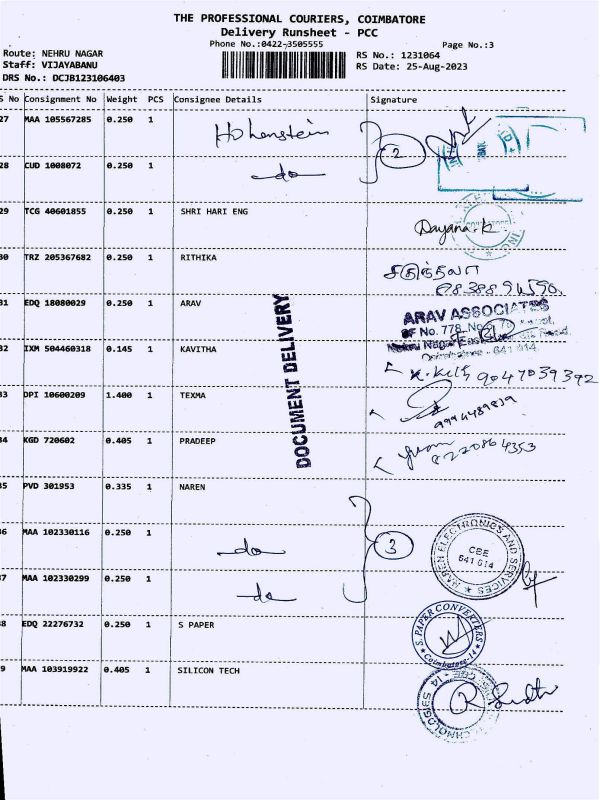 THE PROFESSIONAL COURIERS, COIMBATORE
Delivery Runsheet - PCC
Phone No.:0422-3505555 Page No.:3
Route: NEHRU NAGAR RS No.: 1231064
Staff: VIJAYABANU RS Date: 25-Aug-2023
DRS No.: DCJB123106403
S No Consignment No Weight PCS Consignee Details Signature
27 MAA 105567285 0.250 1 Hohenstein 2
28 CUD 1008072 0.250 1 do
29 TCG 40601855 0.250 1 SHRI HARI ENG Dayana.k
30 TRZ 205367682 0.250 1 RITHIKA
31 EDQ 18080029 0.250 1 ARAV ARAV ASSOCIATES
SF No. 778, No.
Nehru Nagar East
Coimbatore - 641 014.
32 IXM 504460318 0.145 1 KAVITHA 9047039392
33 DPI 10600209 1.400 1 TEXMA
34 KGD 720602 0.405 1 PRADEEP 8220864353
35 PVD 301953 0.335 1 NAREN
36 MAA 102330116 0.250 1 do 3 ELECTRONICS AND SERVICES CBE 641 014
37 MAA 102330299 0.250 1 do
38 EDQ 22276732 0.250 1 S PAPER S. PAPER CONVERTERS Coimbatore
39 MAA 103919922 0.405 1 SILICON TECH
DOCUMENT DELIVERY